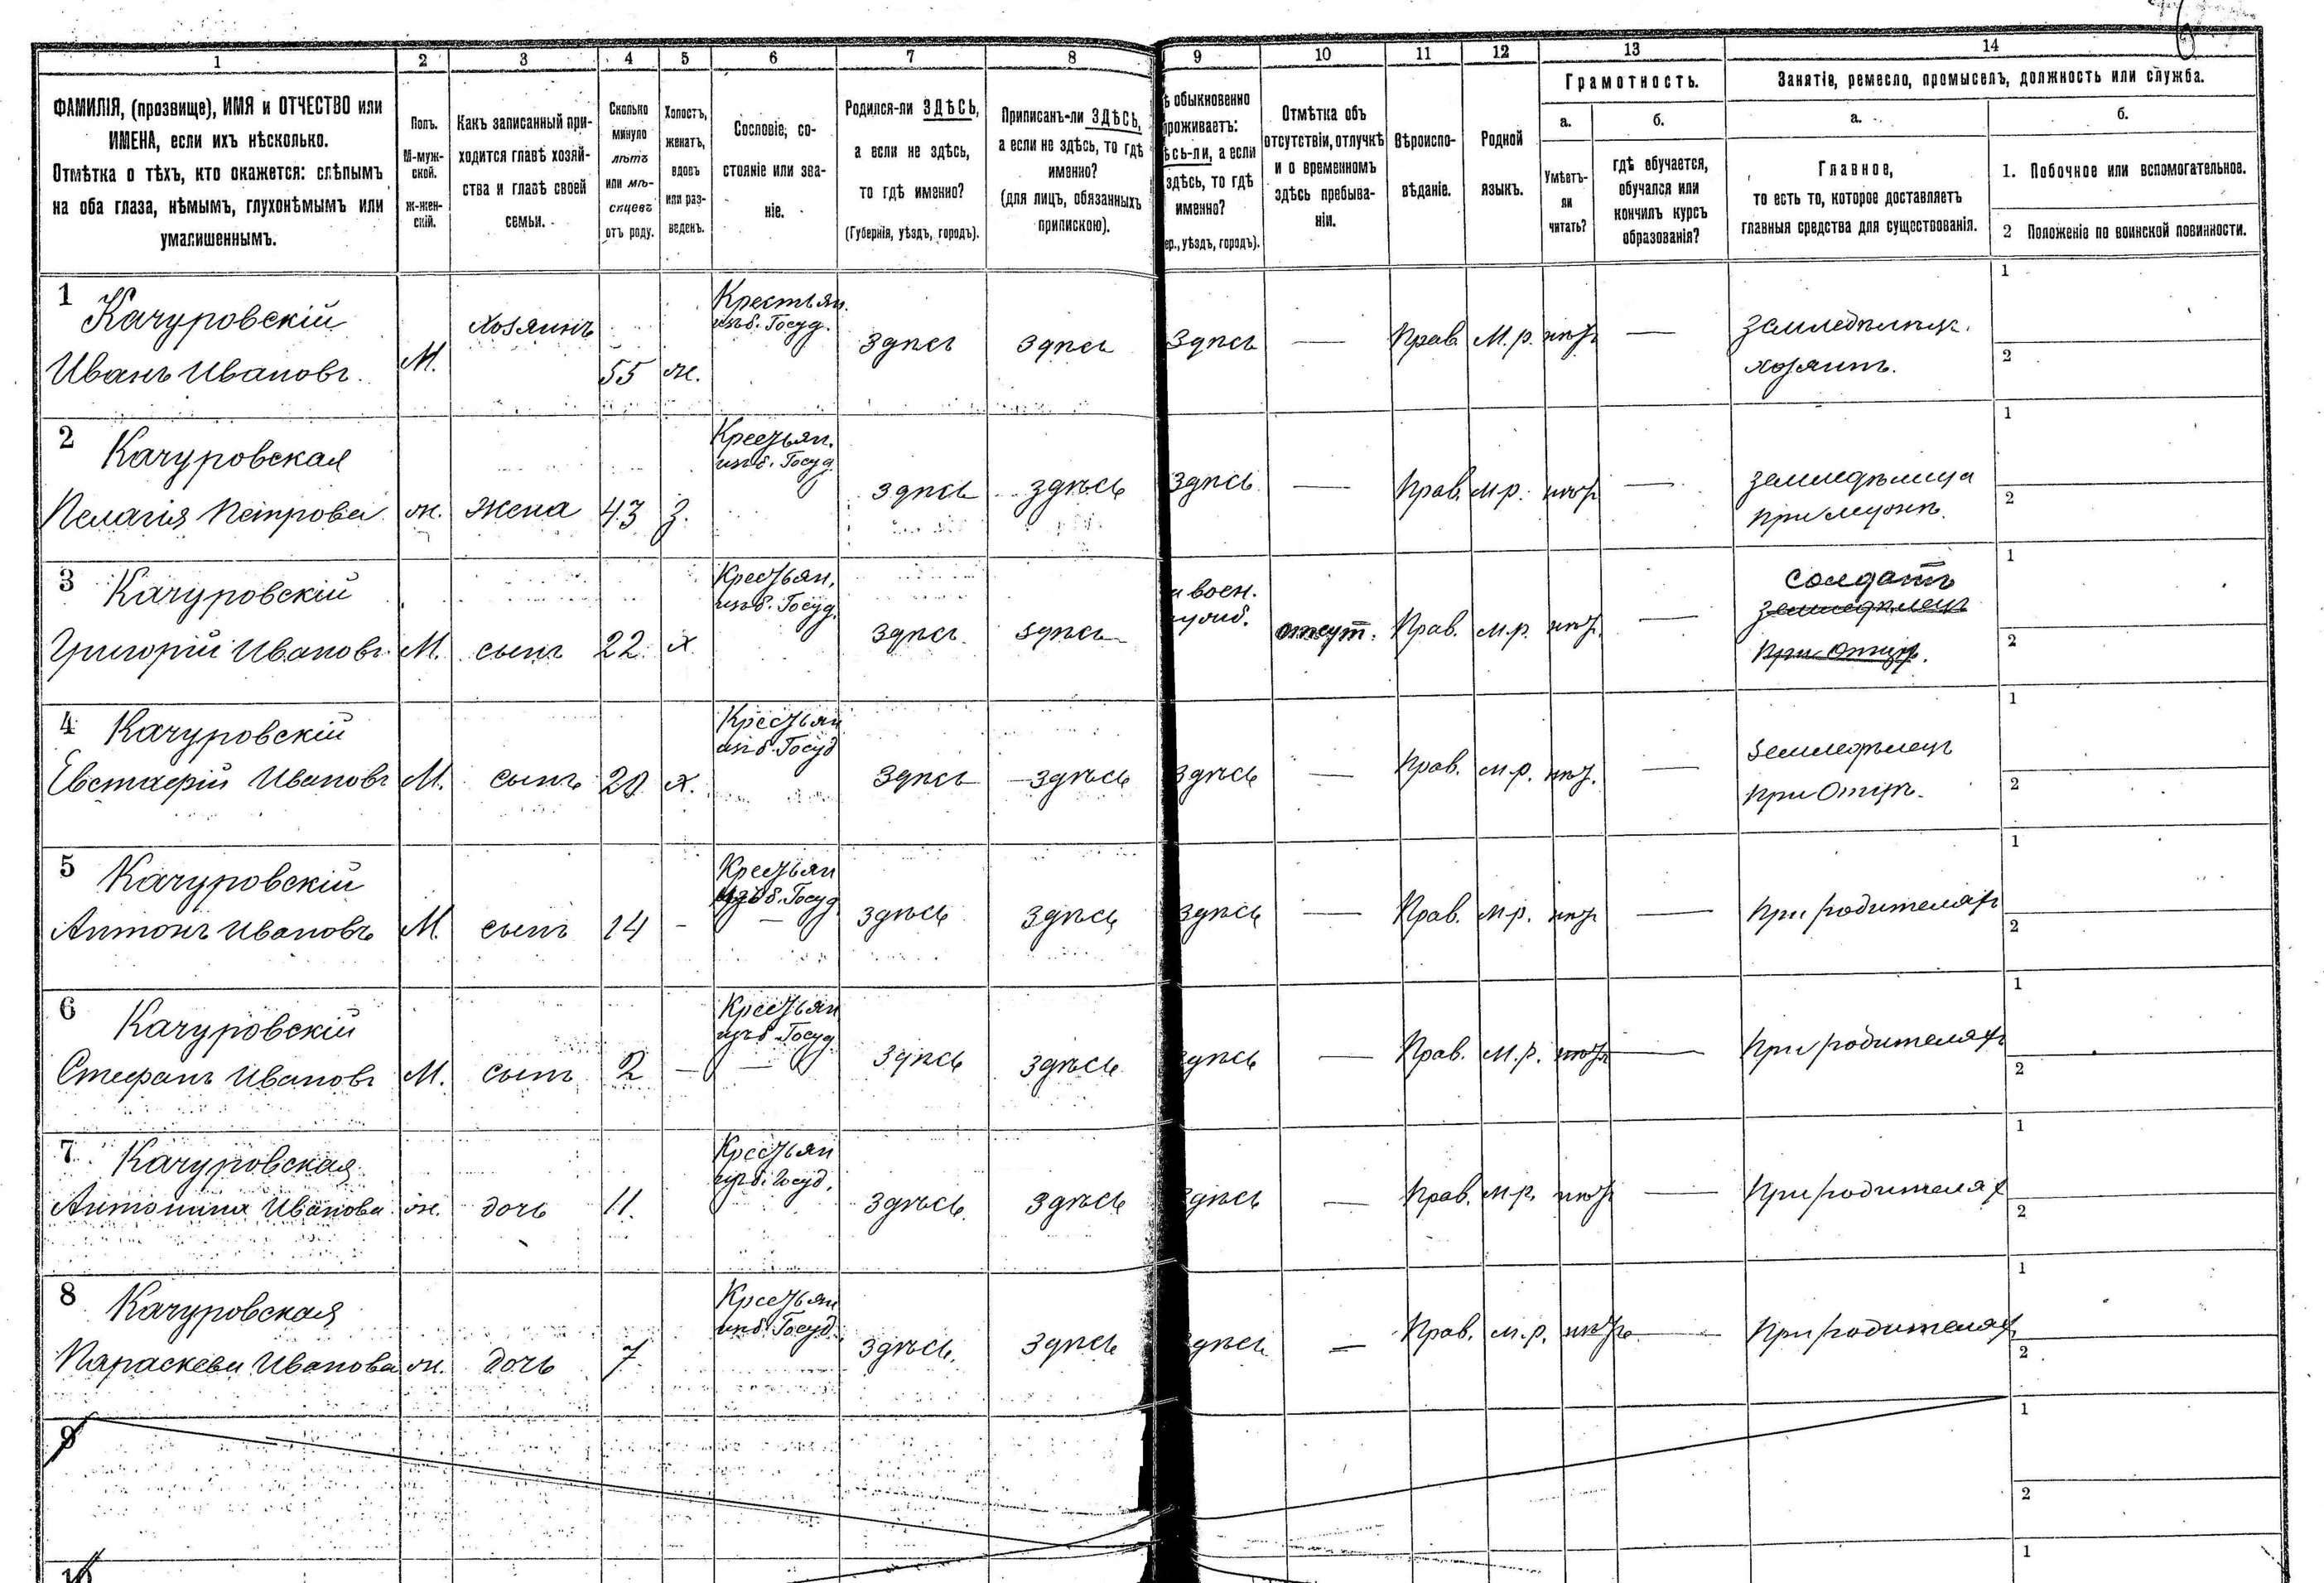 1 2 3 4 5 6 7 8 9 10 11 12 13 14
ФАМИЛІЯ, (прозвище), ИМЯ и ОТЧЕСТВО или
ИМЕНА, если ихъ нѣсколько.
Отмѣтка о тѣхъ, кто окажется: слѣпымъ
на оба глаза, нѣмымъ, глухонѣмымъ или
умалишеннымъ.
Полъ.
М-муж-
ской.
Ж-жен-
скій.
Какъ записанный при-
ходится главѣ хозяй-
ства и главѣ своей
семьи.
Сколько
минуло
лѣтъ
или мѣ-
сяцевъ
отъ роду.
Холостъ,
женатъ,
вдовъ
или раз-
веденъ.
Сословіе, со-
стояніе или зва-
ніе.
Родился-ли ЗДѢСЬ,
а если не здѣсь,
то гдѣ именно?
(Губернія, уѣздъ, городъ).
Приписанъ-ли ЗДѢСЬ,
а если не здѣсь, то гдѣ
именно?
(для лицъ, обязанныхъ
припискою).
ѣ обыкновенно
проживаетъ:
ѣсь-ли, а если
здѣсь, то гдѣ
именно?
ер., уѣздъ, городъ).
Отмѣтка объ
отсутствіи, отлучкѣ
и о временномъ
здѣсь пребыва-
ніи.
Вѣроиспо-
вѣданіе.
Родной
языкъ.
Грамотность.
а.
Умѣетъ-
ли
читать?
б.
гдѣ обучается,
обучался или
кончилъ курсъ
образованія?
Занятіе, ремесло, промыселъ, должность или служба.
а.
Главное,
то есть то, которое доставляетъ
главныя средства для существованія.
б.
1. Побочное или вспомогательное.
2 Положеніе по воинской повинности.
1 Качуровскій
Иванъ Ивановъ.
М.
Хозяинъ
55
ж.
Крестьян.
изъ б. Госуд.
Здѣсь
Здѣсь
Здѣсь
—
Прав.
М.р.
нѣтъ
—
Земледѣлец.
хозяинъ.
1
2
2 Качуровская
Пелагія Петрова
ж.
жена
43
з.
Крестьян.
изъ б. Госуд.
Здѣсь
Здѣсь
Здѣсь
—
Прав.
м.р.
нѣтъ
—
земледѣлица
при мужѣ.
1
2
3 Качуровскій
Григорій Ивановъ
М.
сынъ
22.
х
Крестьян.
изъ б. Госуд.
Здѣсь
Здѣсь
а воен.
служб.
отсут.
Прав.
м.р.
нѣт.
—
солдатъ
земледѣлец
при Отцѣ.
1
2
4 Качуровскій
Евстафій Ивановъ
М.
сынъ
20
х.
Крестьян
изъ б. Госуд
Здѣсь
Здѣсь
Здѣсь
—
Прав.
м.р.
нѣт.
—
земледѣлец
при Отцѣ.
1
2
5 Качуровскій
Антонъ Ивановъ
М.
сынъ
14
-
Крестьян
изъ б. Госуд
Здѣсь
Здѣсь
Здѣсь
—
Прав.
м.р.
нѣт
—
при родителях
1
2
6 Качуровскій
Стефанъ Ивановъ
М.
сынъ
2
—
Крестьян
изъ б Госуд.
Здѣсь
Здѣсь
Здѣсь
—
Прав.
м.р.
нѣтъ
—
при родителях
1
2
7 Качуровская
Антонина Иванова
ж.
дочь
11.
Крестьян
изъ б. Госуд.
Здѣсь.
Здѣсь
здѣсь
—
Прав.
м.р.
нѣтъ
—
при родителях
1
2
8 Качуровская
Параскева Иванова
ж.
дочь
7
Крестьян
изъ б. Госуд.
Здѣсь.
Здѣсь
здѣсь
—
Прав.
м.р.
нѣтъ
—
при родителях
1
2
9
1
2
10
1